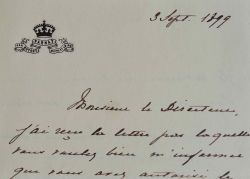 3 Sept. 1899
Monsieur le Directeur,
j'ai reçu la lettre par laquelle
vous voulez bien m'informer
que vous avez autorisé le